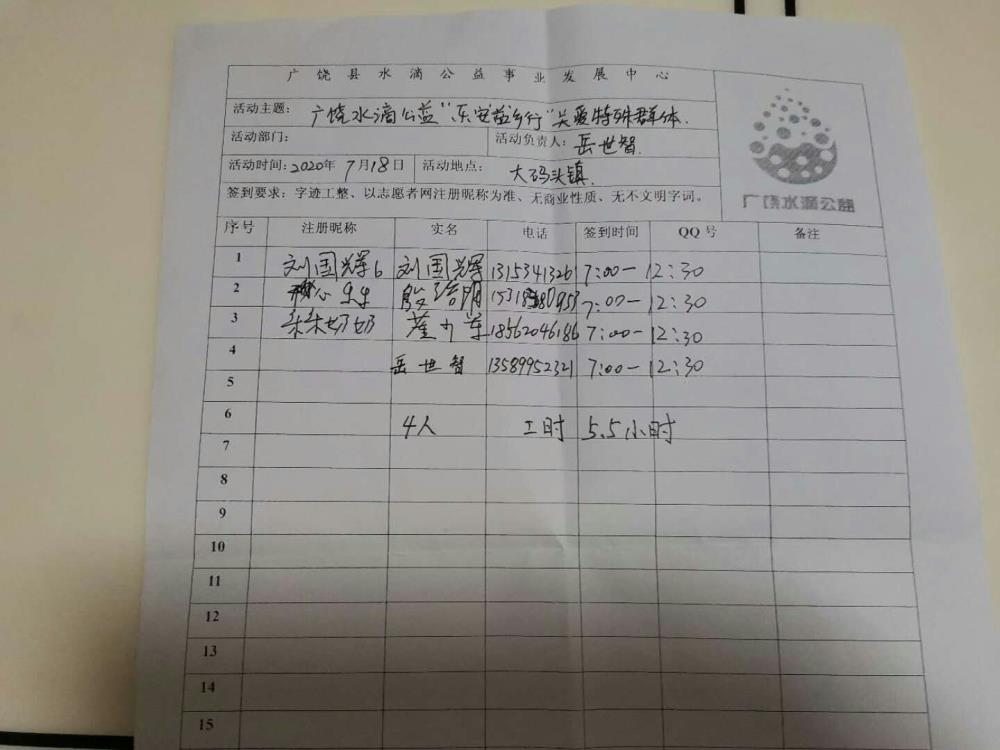 广饶县水滴公益事业发展中心
活动主题: 广饶水滴公益"乐安益乡行"关爱特殊群体.
活动部门: 活动负责人: 岳世智.
活动时间: 2020年 7月18日 活动地点: 大码头镇.
签到要求: 字迹工整、以志愿者网注册昵称为准、无商业性质、无不文明字词。
广饶水滴公益
序号 注册昵称 实名 电话 签到时间 QQ 号 备注
1 刘国辉6 刘国辉 13153413261 7:00-12:30
2 7:00-12:30
3 朵朵奶奶 18562046186 7:00-12:30
4 岳世智 13589952321 7:00-12:30
5
6 4人 工时 5.5小时
7
8
9
10
11
12
13
14
15